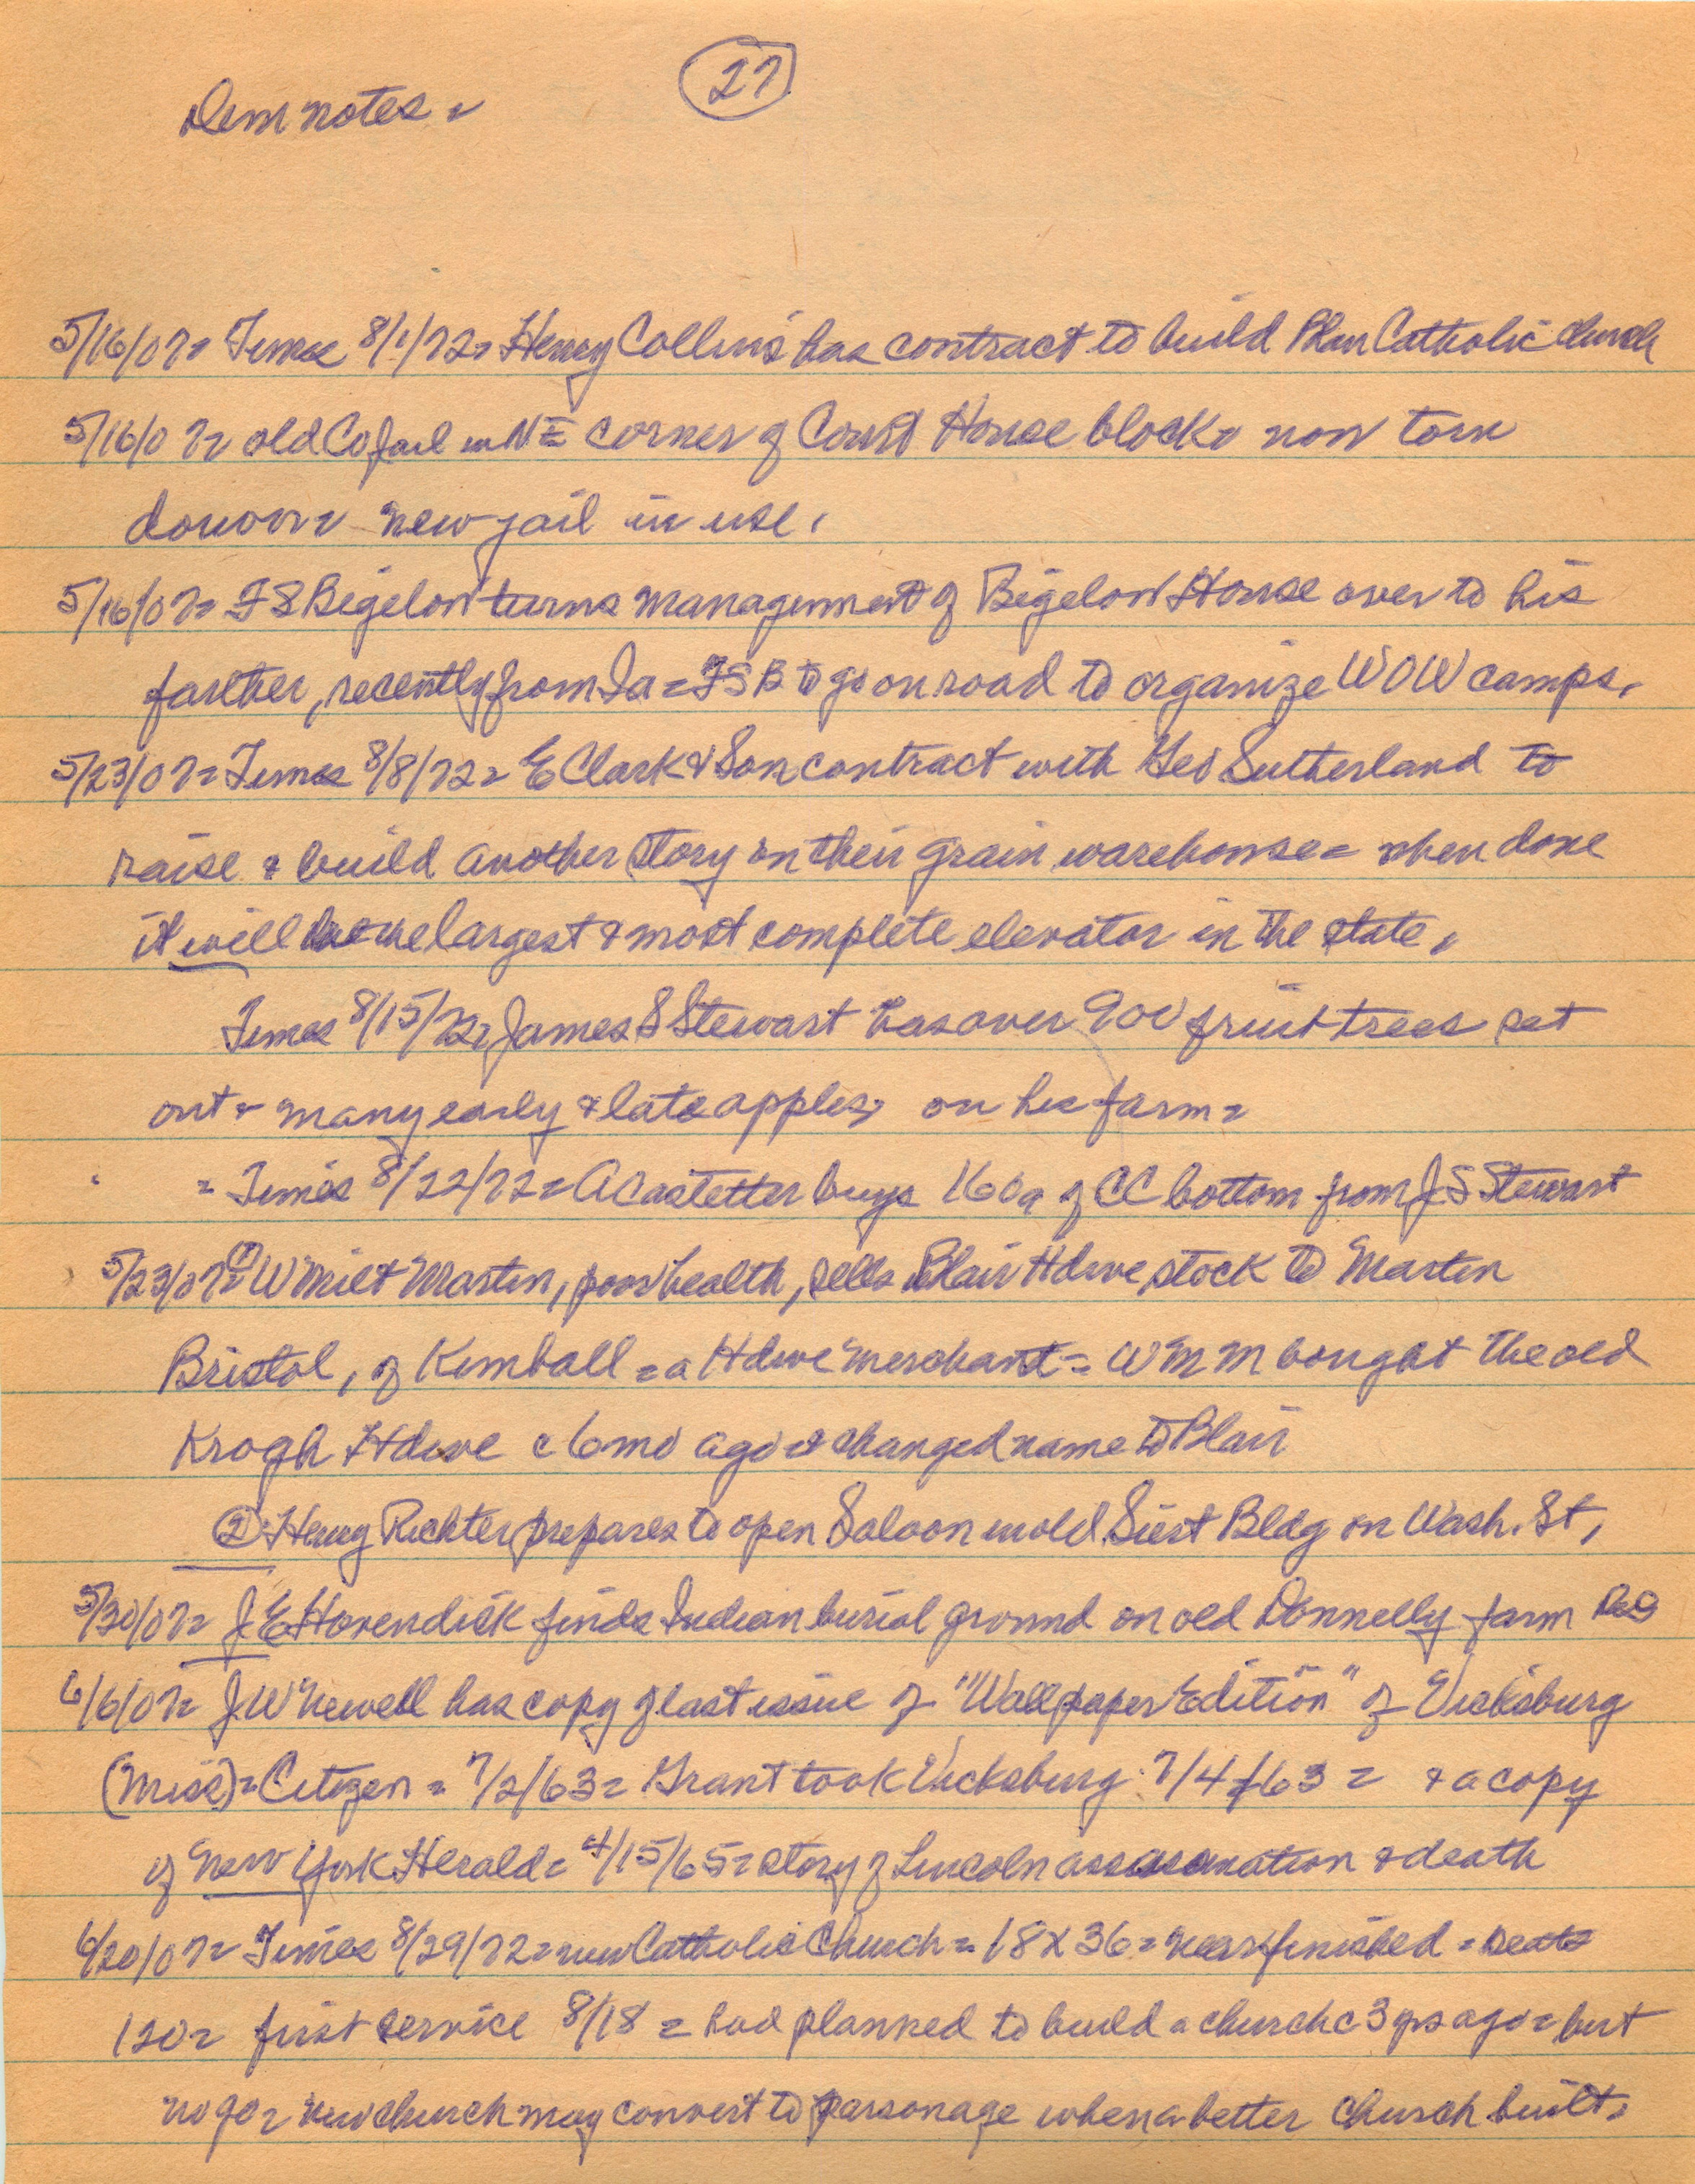 27
Dem notes =
5/16/07 = Times 8/1/72 = Henry Collins has contract to build Catholic church
5/16/07 = old Co jail in NE corner of Court House block = now torn
down = new jail in use.
5/16/07 = F S Bigelow turns management of Bigelow House over to his
farther, recently from Ia = FSB to go on road to organize WOW camps.
5/23/07 = Times 8/8/72 = E Clark & Son contract with Geo Sutherland to
raise & build another story on their grain warehouse = when done
it will be the largest & most complete elevator in the state.
Times 8/15/72 = James S Stewart has over 900 fruit trees set
out = many early & late apples, on his farm =
= Times 8/22/72 = A Castetter buys 160a of CC bottom from J S Stewart
5/23/07 = (1) W Milt Martin, poor health, sells Blair Hdwe stock to Martin
Bristol, of Kimball = a Hdwe merchant = W M M bought the old
Krogh Hdwe c 6 mo ago & changed name to Blair
(2) Henry Richter prepares to open Saloon in old Siert Bldg on Wash. St,
5/30/07 = J E Hovendick finds Indian burial ground on old Donnelly farm
6/6/07 = J W Newell has copy of last issue of "Wallpaper Edition" of Vicksburg
(Miss) = Citizen = 7/2/63 = Grant took Vicksburg 7/4/63 = & a copy
of New York Herald = 4/15/65 = story of Lincoln assasination & death
6/20/07 = Times 8/29/72 = new Catholic Church = 18 x 36 = near finished = seats
120 = first service 8/18 = had planned to build a church c 3 yrs ago = but
no go = new church may convert to parsonage when a better church built.